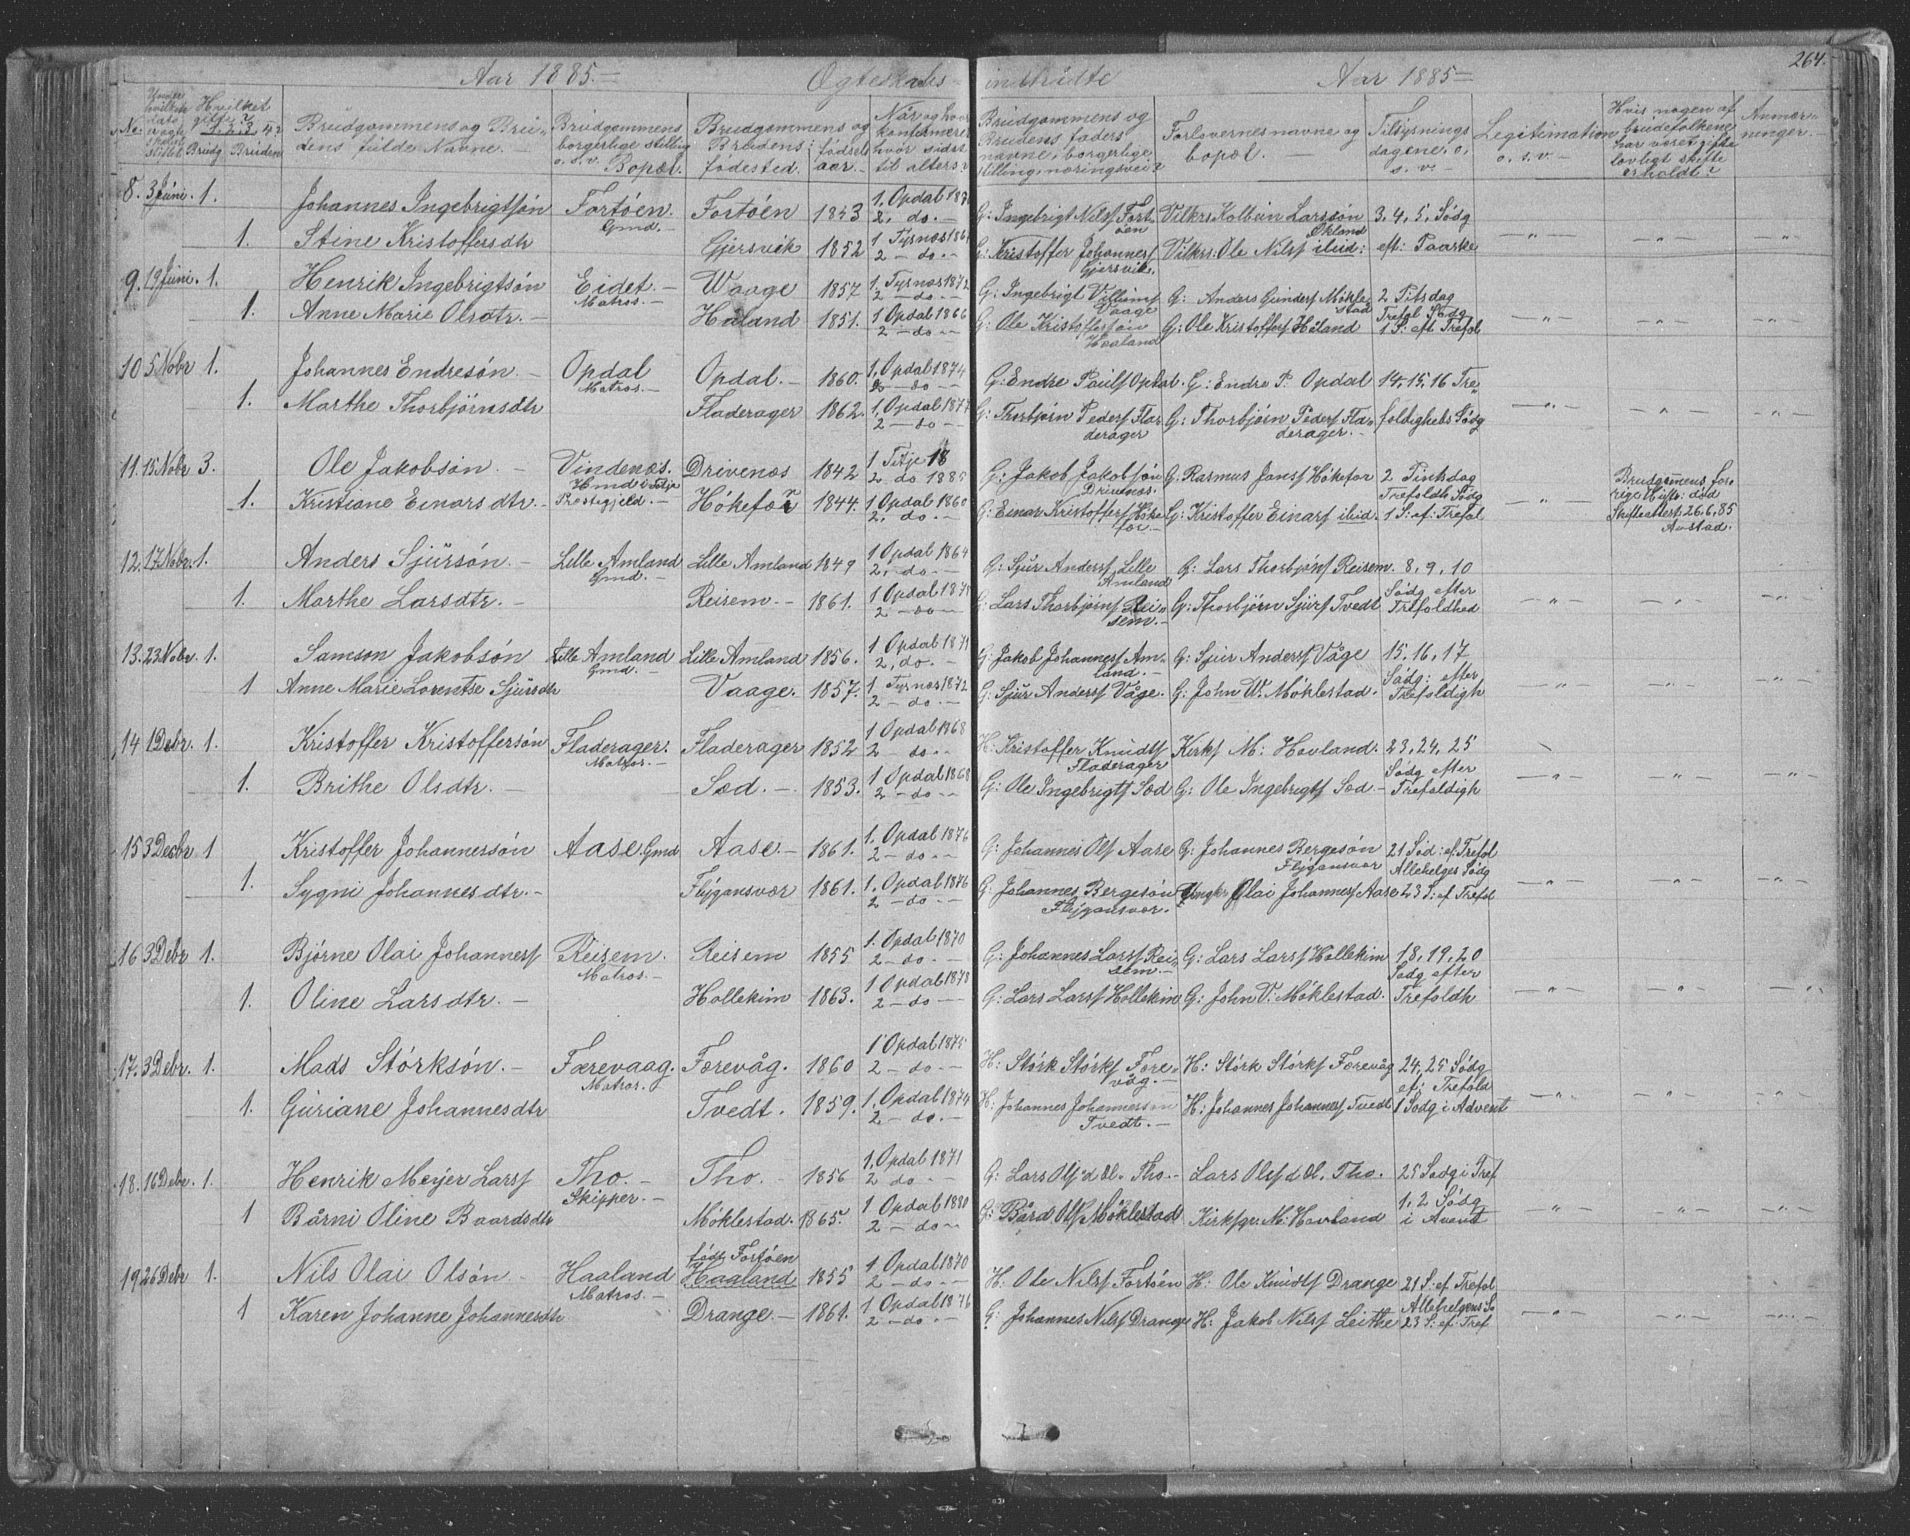 264.
Aar 1885.— Ægteskabs- indtrådte Aar 1885—
No. Hvilket gifte? 1. 2. 3. 4? Brudg. Bruden
Brudgommens og Brudens fulde Navne.—
Brudgommens borgerlige stilling o. s. v. Bopæl.
Brudgommens og Brudens fødested. fødsels aar.—
Når og hvor konfirmeret hvor sidst til alters?
Brudgommens og Brudens faders navne, borgerlige stilling, næringsvei?
Forlovernes navne og bopæl.—
Tillysnings dagene, o. s. v.—
Legitimation o. s. v.—
Hvis nogen af brudefolkene har været gifte lovligt skifte erholdt?
Anmærkninger.—
8. 3 Juni. 1. Johannes Ingebrigtsøn Fortøen. Gmd.— Fortøen 1853 1. Opdal 2. do.— G: Ingebrigt Nilsf Fortøen Vilkrs Kolbein Larssøn Økland 3. 4. 5. Sødg
1. Stine Kristoffersdtr Gjersvik 1852 1. Tysnæs 2 – do – G: Kristoffer Johannesf Gjersvik. Vilkrs: Ole Nilsf ibid: eft: Paaske — " — — " — — " —
9. 19 Juni. 1. Henrik Ingebrigtsøn Eidet.— Matros.— Waage 1857 1 Tysnæs 1872 2 – do – G: Ingebrigt Villumsf Vaage G: Anders Gundersf Møklestad 2 Pitsdag Trefol Sødg
1. Anne Marie Olsdtr.— Haland 1851. 1 Opdal 1866 2 – do – G: Ole Kristoffersøn Haaland G: Ole Kristoffersf Håland 1 S: eft Trefol — " — — " — — " —
10 5 Nobr 1. Johannes Endresøn.— Opdal Matros.— Opdal.— 1860. 1. Opdal 1874 2 – do – G: Endre Paulsf Opdal. G: Endre P. Opdal 14. 15. 16 Tre„
1. Marthe Thorbjørnsdtr Fladerager 1862. 1. Opdal 1877 2 – do – G: Thorbjørn Pedersf Fladerager G: Thorbjørn Pedersf Fladerager.— foldigheds Sødg — " — — " — — " —
11. 15 Nobr 3. Ole Jakobsøn.— Vindenæs. Hmd i Fitje Prestegjeld.— Drivenæs 1842 1 Fitje 18 2. do 1885 G: Jakob Jakobsøn Drivenæs. G: Rasmus Jansf Høkefor 2 Pinkdag Trefoldh Sødg Brudgommens forrige Hustr: død Skifteattest 26.6.85 Austad.
1. Kristiane Einarsdtr.— Høkefær 1844. 1 Opdal 1860 2. do.— G: Einar Kristoffersf Høkefor.— G: Kristoffer Einarsf ibid. 1 S: ef: Trefol — " —
12. 17 Nobr. 1. Anders Sjursøn.— Lille Amland Gmd.— Lille Amland 1849 1 Opdal 1864 2. – do – G: Sjur Andersf Lille Amland G: Lars Thorbjørnsf Reisem. 8, 9, 10 Sødg efter
1. Marthe Larsdtr.— Reisem.— 1861. 1 Opdal 2 – do – G: Lars Thorbjørnsf Reisem.— G: Thorbjørn Sjursf Tvedt Trefoldhed — " — — " — — " —
13. 23 Nobr. 1. Samson Jakobsøn Lille Amland Gmd.— Lille Amland 1856. 1 Opdal 1871 2, do.— G: Jakob Johannesf Amland.— G: Sjur Andersf Våge 15, 16, 17 Sødg: efter
1 Anne Marie Lorentse Sjursdtr Vaage. 1857. 1 Tysnæs 1872 2 – do – G: Sjur Andersf Våge. G: John W. Møklestad. Trefoldigh — " — — " — — " —
14 1 Debr. 1. Kristoffer Kristoffersøn Fladerager. Matros.— Fladerager 1852 1 Opdal 1868 2 – do – H: Kristoffer Knudtsf Fladerager Kirkf M: Hovland. 23, 24, 25 Sødg efter
1. Brithe Olsdtr.— Sæd.— 1853. 1 Opdal 1868 2 – do – G: Ole Ingebrigtsf Sæd G: Ole Ingebrigtsf Sæd.— Trefoldigh — " — — " — — " —
15 3 Decbr 1 Kristoffer Johannessøn Aase. Gmd Aase.— 1861. 1. Opdal 1876 2 – do – G: Johannes Olsf Aase G: Johannes Bergesøn Flygansvær 21 Sød: ef. Trefol Allehelges Sødg
1. Sygni Johannesdtr.— Flygansvær 1861. 1. Opdal 1876 2 – do – G: Johannes Bergesøn Flygansvær. Ungkr Olai Johannesf Aase 23 S: ef Trefol — " — — " — — " —
16 3 Debr 1. Bjørne Olai Johannesf Reisem. Matros.— Reisem 1855 1. Opdal 1870 2 – do – G: Johannes Larsf Reisem.— G: Lars Larsf Hollekim 18, 19, 20 Sødg efter
1. Oline Larsdtr.— Hollekim 1863. 1 Opdal 1878 2 – do – G: Lars Larsf Hollekim G: John V. Møklestad. Trefoldh — " — — " — — " —
17. 3 Debr. 1. Mads Størksøn.— Færevaag. Matros.— Færevåg. 1860 1 Opdal 1875 2 – do – H: Størk Størksf Færevåg.— H: Størk Størksf Færevåg 24, 25 Sødg ef: Trefold
1. Guriane Johannesdtr Tvedt. 1859. 1. Opdal 1874 2. – do – H: Johannes Johannessøn Tvedt.— H: Johannes Johannesf Tvedt 1 Sødg i Advent — " — — " — — " —
18. 16 Debr. 1. Henrik Meyer Larsf Tho.— Skipper.— Tho.— 1856 1. Opdal 1871 2 do – G: Lars Olsf d Æl. Tho.— Lars Olsf d Æl. Tho. 25 Sødg i Tref
1 Bårni Oline Baardsdtr Møklestad. 1865. 1 Opdal 1880 2 – do – G: Bård Olsf Møklestad Kirksgr. M: Hovland 1, 2 Sødg i Avent — " — — " — — " —
19. 26 Debr 1. Nils Olai Olsøn – Haaland Matros.— født Fortøen Haaland 1855 1. Opdal 1870 2 – do – H: Ole Nilsf Fortøen H: Ole Knudtsf Drange 21 S: ef Trefol
1 Karen Johanne Johannesdtr Drange.— 1861. 1 Opdal 1876 2 – do – G: Johannes Nilsf Drange H: Jakob Nilsf Leithe Allehelgens S. 23 S: ef: Tref — " — — " — — " —